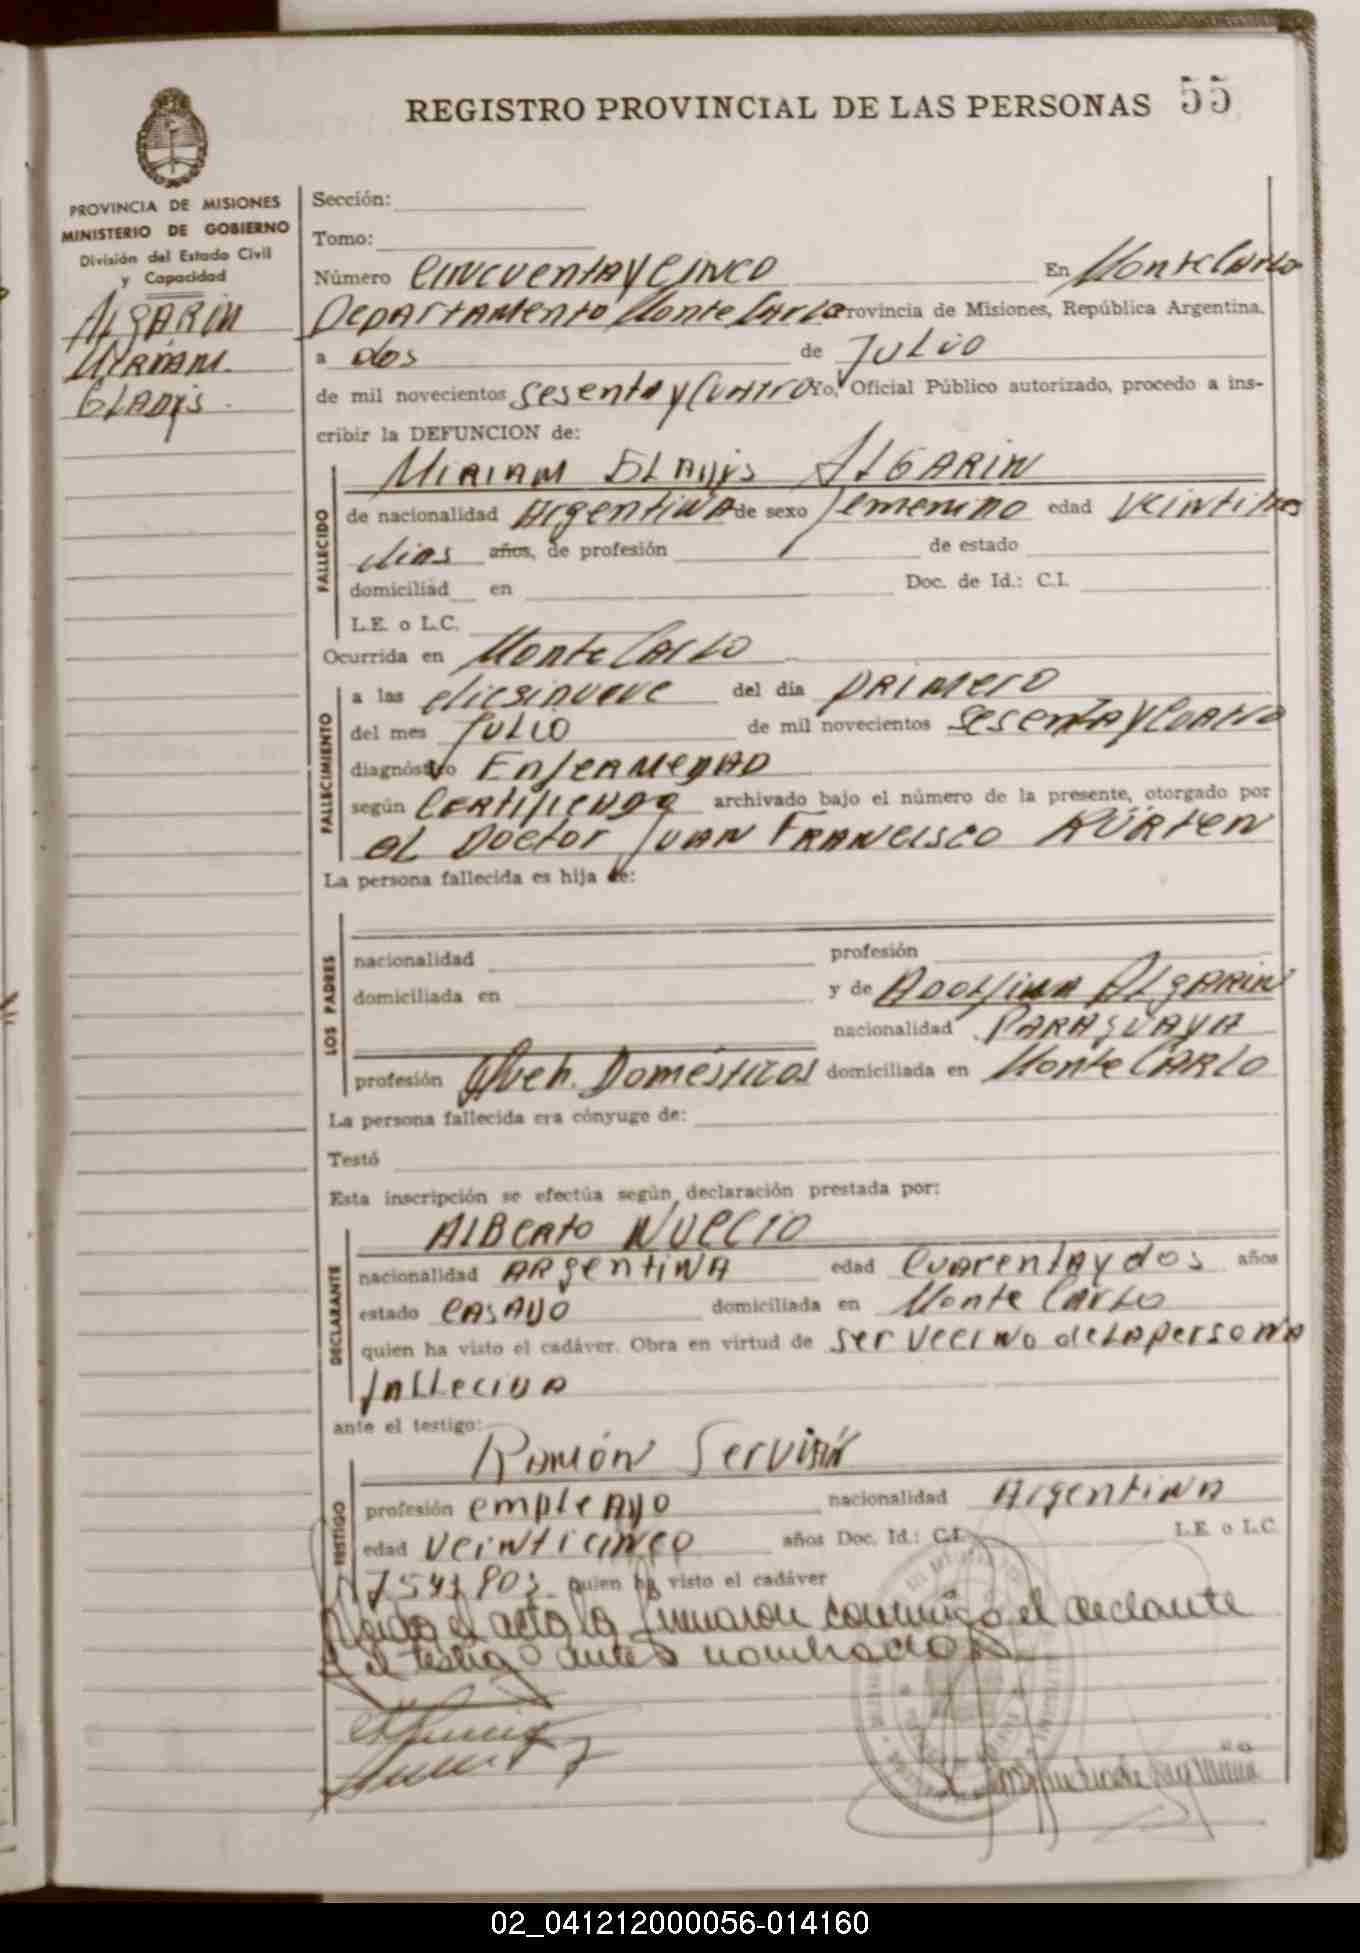 REGISTRO PROVINCIAL DE LAS PERSONAS 55
PROVINCIA DE MISIONES
MINISTERIO DE GOBIERNO
División del Estado Civil
y Capacidad
ALGARIN
MIRIAM
GLADYS.
Sección:
Tomo:
Número Cincuenta y Cinco En Monte Carlo
Departamento Monte Carlo Provincia de Misiones, República Argentina,
a dos de Julio
de mil novecientos sesenta y Cuatro Yo, Oficial Público autorizado, procedo a ins-
cribir la DEFUNCION de:
MIRIAM GLADYS ALGARIN
FALLECIDO
de nacionalidad Argentina de sexo femenino edad veintitres
dias años, de profesión de estado
domiciliad en Doc. de Id.: C.I.
L.E. o L.C.
Ocurrida en Monte Carlo
FALLECIMIENTO
a las diesinueve del día primero
del mes Julio de mil novecientos sesenta y Cuatro
diagnóstico Enfermedad
según Certificado archivado bajo el número de la presente, otorgado por
el Doctor Juan Francisco Kürten
La persona fallecida es hija de:
LOS PADRES
nacionalidad profesión
domiciliada en y de Adolfina Algarin
nacionalidad Paraguaya
profesión Queh. Domésticos domiciliada en Monte Carlo
La persona fallecida era cónyuge de:
Testó
Esta inscripción se efectúa según declaración prestada por:
DECLARANTE
Alberto Nuccio
nacionalidad Argentina edad Cuarenta y dos años
estado casado domiciliada en Monte Carlo
quien ha visto el cadáver. Obra en virtud de ser vecino de la persona
fallecida
ante el testigo:
TESTIGO
Ramón Servian
profesión empleado nacionalidad Argentina
edad veinticinco años Doc. Id.: C.I. L.E. o L.C.
quien ha visto el cadáver
el acta la firmaron conmigo el declante
y el testigo antes nombrados
02_041212000056-014160